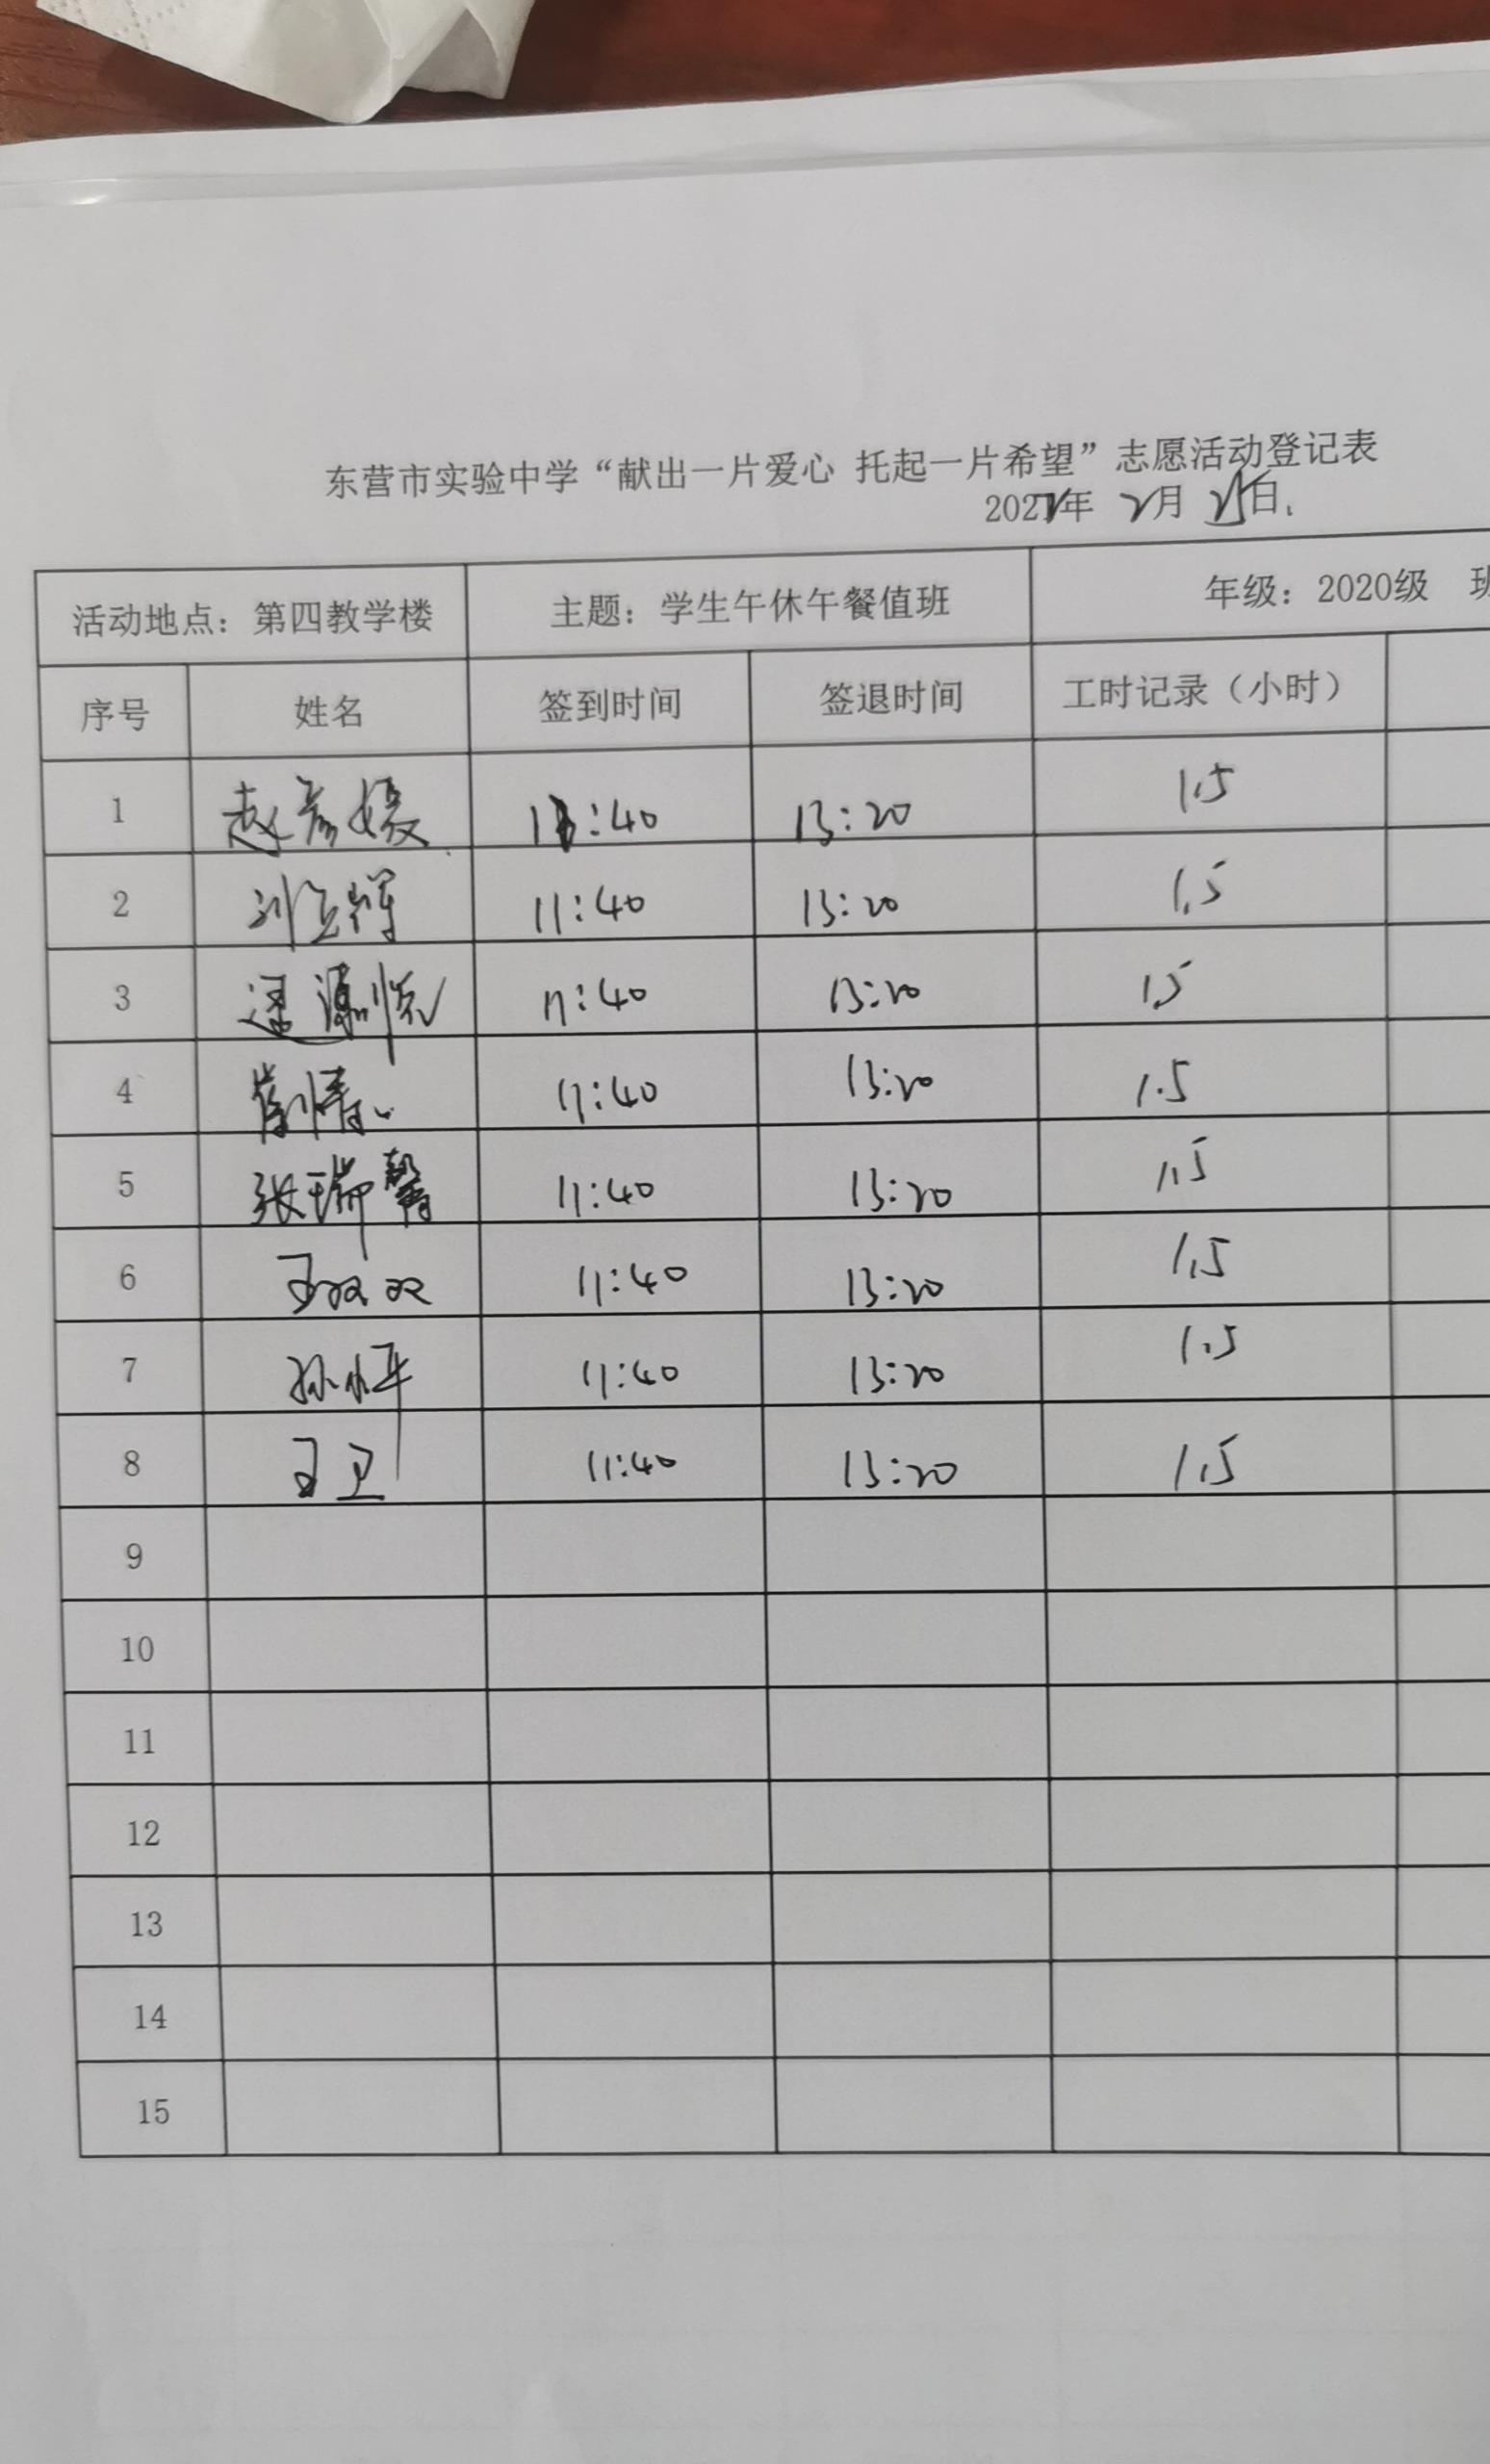 东营市实验中学“献出一片爱心 托起一片希望”志愿活动登记表
2022年 2月 25日
活动地点：第四教学楼 主题：学生午休午餐值班 年级：2020级 班
序号 姓名 签到时间 签退时间 工时记录（小时）
1 赵彦媛 11:40 13:20 1.5
2 刘立辉 11:40 13:20 1.5
3 11:40 13:20 1.5
4 11:40 13:20 1.5
5 张瑞馨 11:40 13:20 1.5
6 王双双 11:40 13:20 1.5
7 孙小平 11:40 13:20 1.5
8 王卫 11:40 13:20 1.5
9
10
11
12
13
14
15